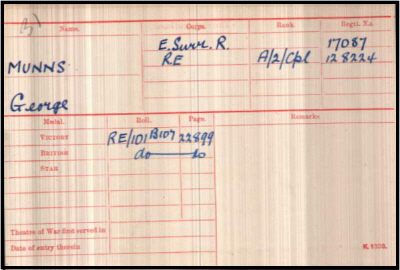 Name. Corps. Rank. Regtl. No.
E. Surr. R. 17087
MUNNS RE A/2/Cpl 128224
George
Medal. Roll. Page. Remarks
VICTORY RE/101 B107 22899
BRITISH do do
STAR
Theatre of War first served in
Date of entry therein
K. 1380.